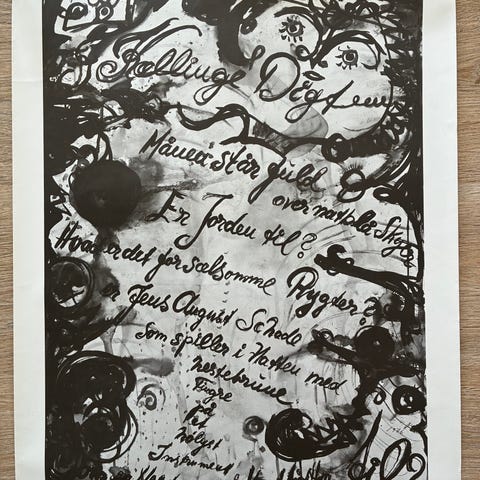 Kællinge Digtene
Månen står fuld
over natblå
Er Jorden til?
Hvad er det for sælsomme Rygter?
er Jens August Schade
Som spiller i Natten med
hestebrune
Fingre
på
et
Instrument